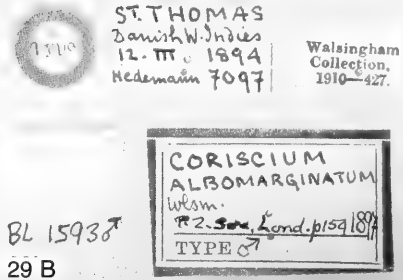 Type
ST. THOMAS
Danish W. Indies
12. III. 1894
Hedemann 7097
Walsingham
Collection,
1910—427.
CORISCIUM
ALBOMARGINATUM
Wlsm.
P. Z. Soc, Lond. p159 1897
TYPE ♂
BL 1593♂
29 B